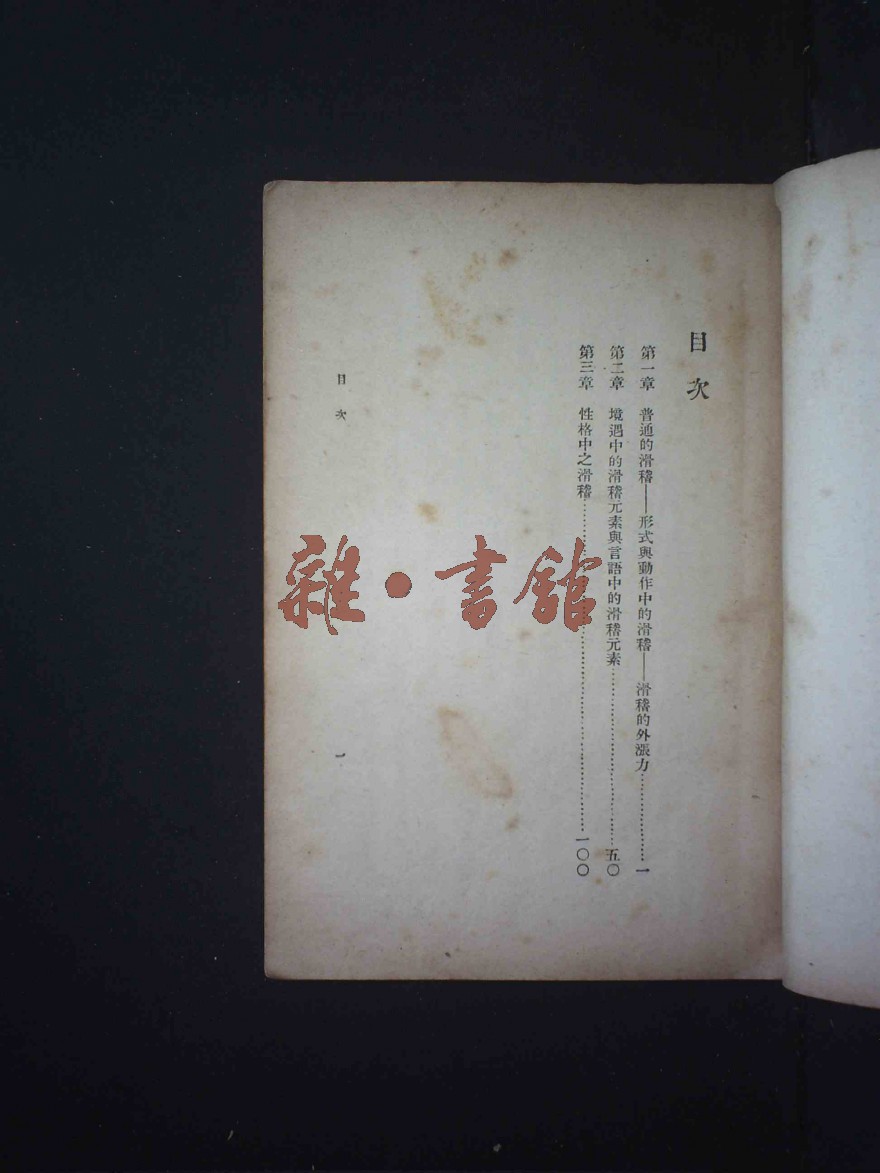 目次
第一章 普通的滑稽——形式與動作中的滑稽——滑稽的外漲力……………一
第二章 境遇中的滑稽元素與言語中的滑稽元素……………五〇
第三章 性格中之滑稽……………一〇〇
目次
一
雜·書館